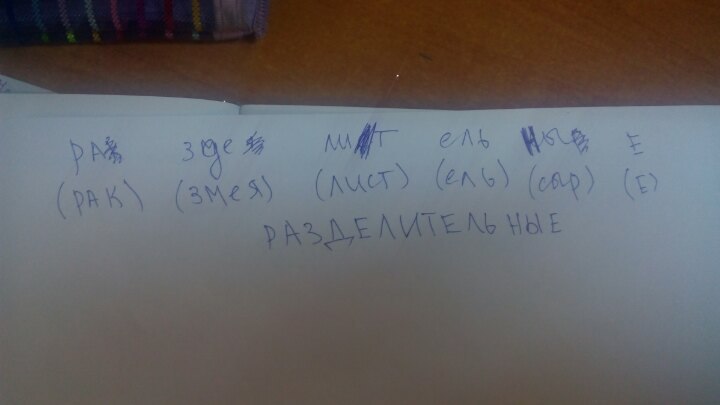 РА зде ли т ель ны Е
(РАК) (ЗМЕЯ) (ЛИСТ) (ЕЛЬ) (СЫР) (Е)
РАЗДЕЛИТЕЛЬНЫЕ